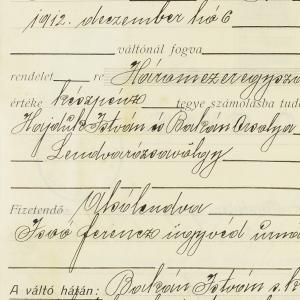 1912. deczember hó 6
váltónál fogva
rendelet re Háromezeregysz
értéke készpénz tegye számolásba tud
Hajdúk István és Bakán Orsolya
Lendvarózsavölgy
Fizetendő Alsólendva
Isoó ferencz ügyvéd urná
A váltó hátán: Bakán István s. k